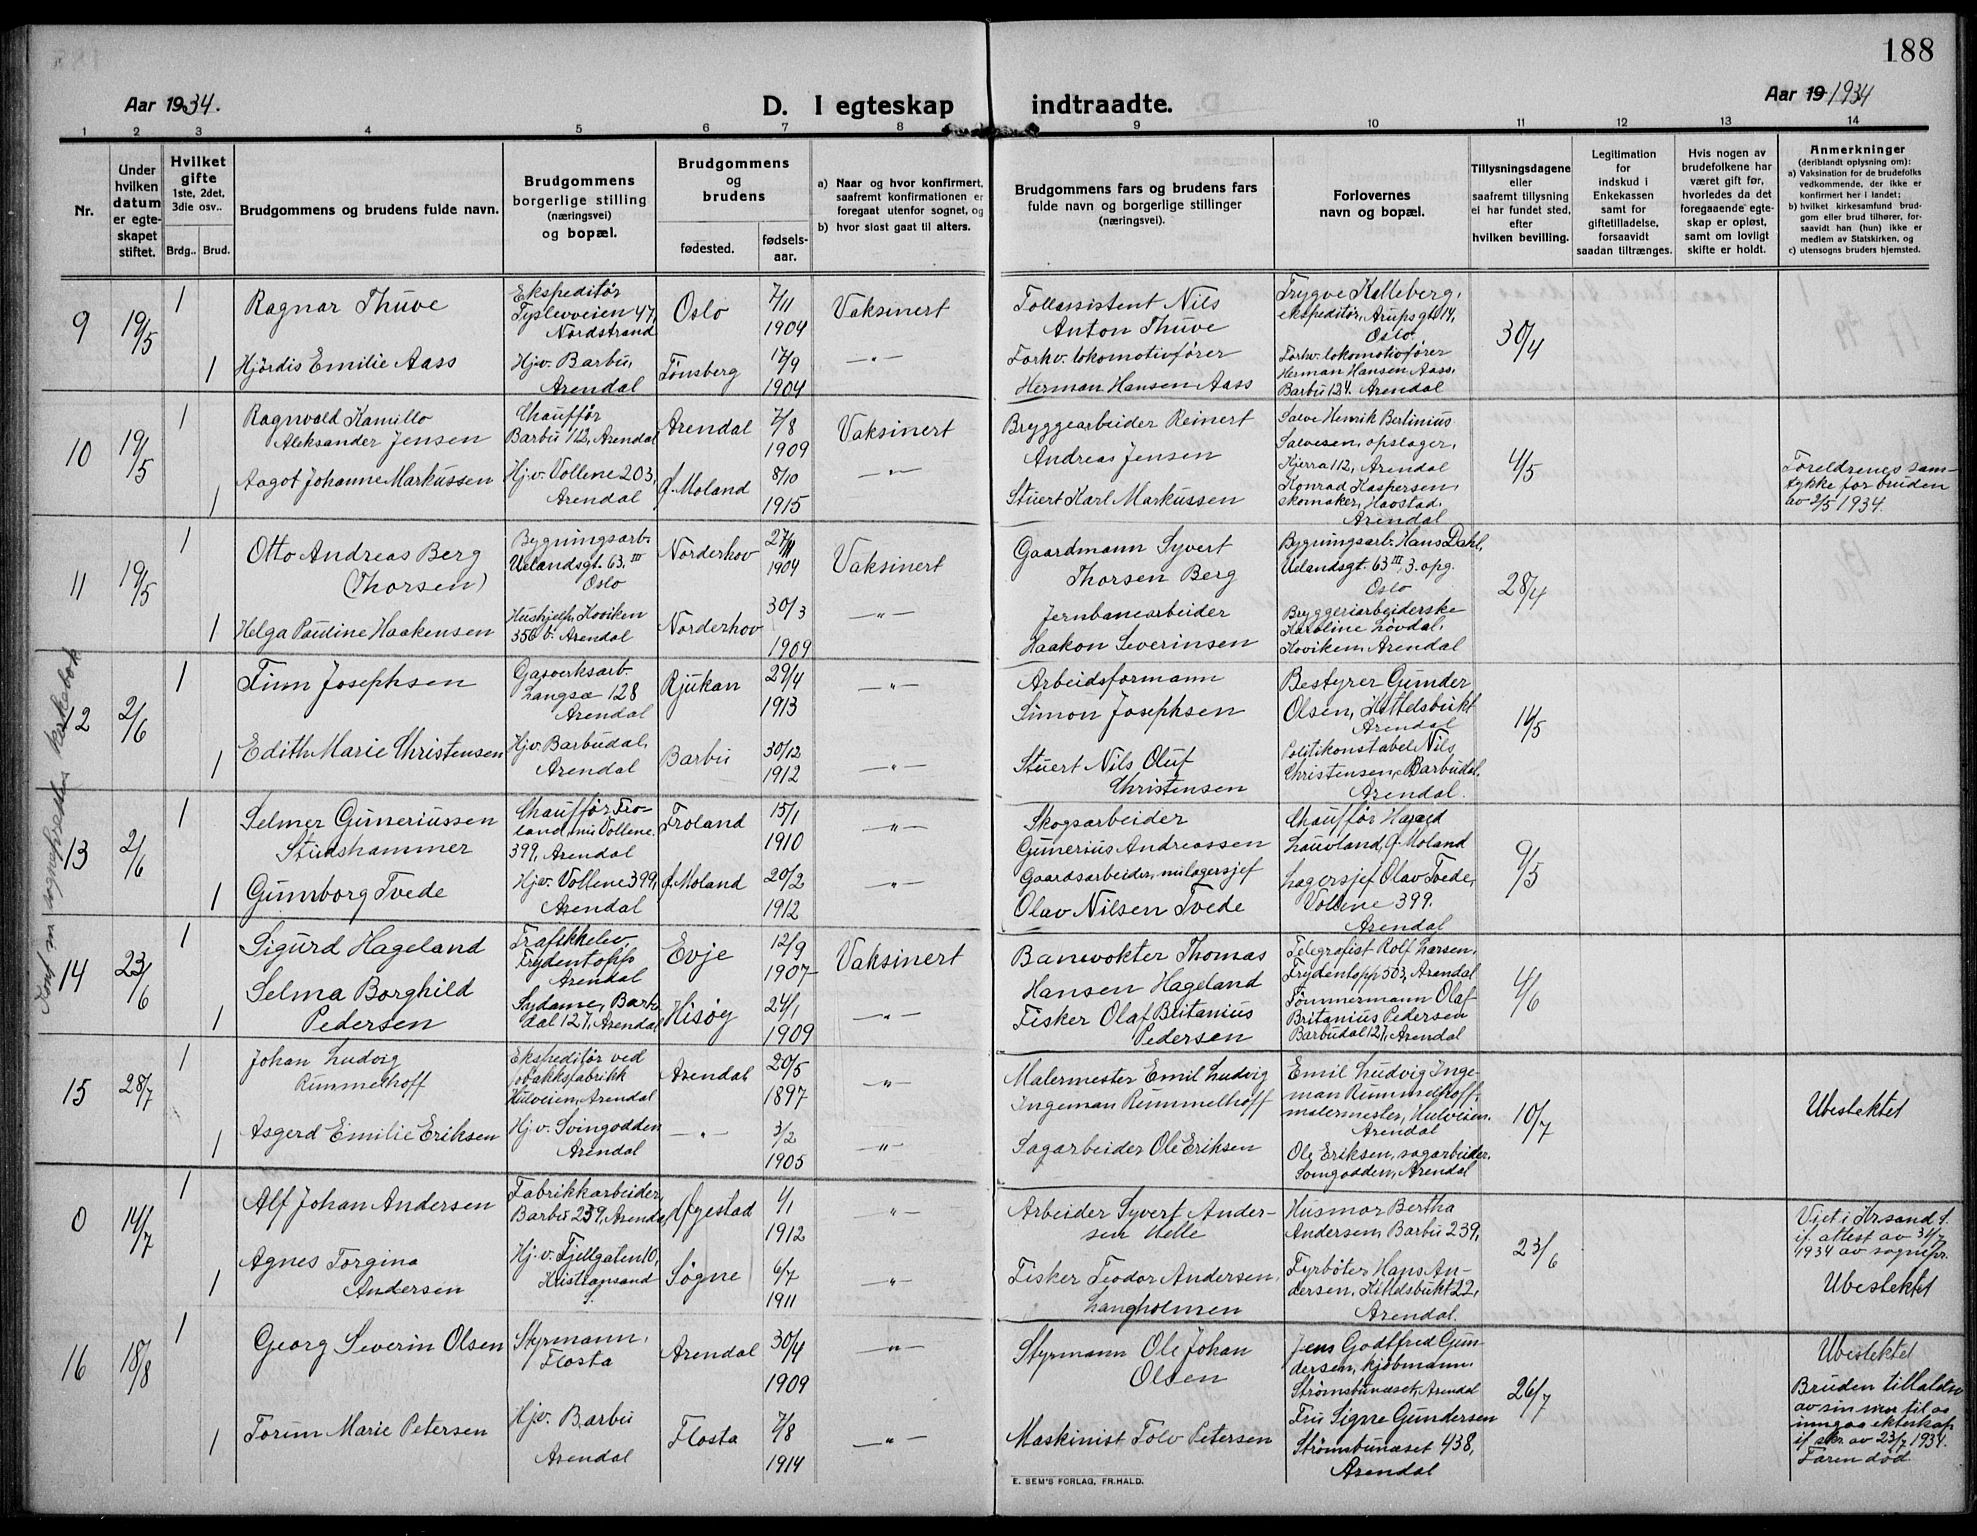 188
Aar 1934.
D. I egteskap indtraadte.
Aar 19 1934
1 2 3 4 5 6 7 8 9 10 11 12 13 14
Nr.
Under hvilken datum er egteskapet stiftet.
Hvilket gifte
1ste, 2det, 3die osv..
Brdg.. Brud.
Brudgommens og brudens fulde navn.
Brudgommens borgerlige stilling (næringsvei) og bopæl.
Brudgommens og brudens
fødested.
fødselsaar.
a) Naar og hvor konfirmert, saafremt konfirmationen er foregaat utenfor sognet, og
b) hvor sidst gaat til alters.
Brudgommens fars og brudens fars fulde navn og borgerlige stillinger (næringsvei).
Forlovernes navn og bopæl.
Tillysningsdagene eller saafremt tillysning ei har fundet sted, efter hvilken bevilling.
Legitimation for indskud i Enkekassen samt for giftetilladelse, forsaavidt saadan tiltrænges.
Hvis nogen av brudefolkene har været gift før, hvorledes da det foregaaende egteskap er opløst, samt om lovligt skifte er holdt.
Anmerkninger
(deriblandt oplysning om):
a) Vaksination for de brudefolks vedkommende, der ikke er konfirmert her i landet;
b) hvilket kirkesamfund brudgom eller brud tilhører, forsaavidt han (hun) ikke er medlem av Statskirken, og
c) utensogns bruders hjemsted.
9 19/5
1 Ragnar Thuve
Ekspeditør
47,
Nordstrand
Oslo 7/11 1904 Vaksinert
Tollassistent Nils
Anton Thuve
Trygve Kalleberg,
ekspeditør, Arupsgt 14,
Oslo.
30/4
1 Hjördis Emilie Aass
Hj.v. Barbu,
Arendal
Tønsberg 17/9 1904 —"—
Forhv. lokomotivfører
Herman Hansen Aass
Forhv. lokomotivfører
Herman Hansen Aass,
Barbu 124. Arendal
10 19/5
1 Ragnvald Kamillo
Aleksander Jensen
Chauffør
Barbu 112, Arendal
Arendal 7/8 1909 Vaksinert
Bryggearbeider Reinert
Andreas Jensen
Salve Henrik Bertinius
Salvesen, opslager,
Kjerra 112, Arendal
4/5
1 Aagot Johanne Markussen
Hj.v. Vollene 203,
Arendal
Ø. Moland 8/10 1915 —"—
Stuert Karl Markussen
Konrad Kaspersen,
skomaker, Havstad,
Arendal
Foreldrenes sam-
tykke for bruden
av 2/5 1934.
11 19/5
1 Otto Andreas Berg
(Thorsen)
Bygningsarb.
Uelandsgt. 63. III
Oslo
Norderhov 27/11 1904 Vaksinert
Gaardmann Syvert
Thorsen Berg
Bygningsarb. Hans Dahl,
Uelandsgt. 63 III, 3. opg.
Oslo
28/4
1 Helga Pauline Haakensen
Hushjelp, Koviken
350 b. Arendal
Norderhov 30/3 1909 —"—
Jernbanearbeider
Haakon Severinsen
Bryggeriarbeiderske
Karoline Løvdal,
Koviken, Arendal
12 2/6
1 Finn Josephsen
Gasverksarb.
Langsæ 128
Arendal
Rjukan 29/4 1913 —"—
Arbeidsformann
Simon Josephsen
Bestyrer Gunder
Olsen, Kittelsbukt
Arendal
16/5
1 Edith Marie Christensen
Hj.v. Barbudal,
Arendal
Barbu 30/12 1912 —"—
Stuert Nils Oluf
Christensen
Politikonstabel Nils
Christensen, Barbudal,
Arendal.
13 2/6
1 Selmer Gumeriussen
Studshammer
Chauffør, Fro-
land, nu Vollene
399, Arendal
Froland 15/1 1910 —"—
Skogsarbeider
Gunerius Andreassen
Chauffør Harald
Lauvland, Ø. Moland
9/5
1 Gunvborg Tvede
Hj.v. Vollene 399,
Arendal
Ø. Moland 20/2 1912 —"—
Gaardsarbeider, nu lagersjef
Olav Nilsen Tvede
Lagersjef Olav Tvede,
Vollene 399.
Arendal
14 23/6
1 Sigurd Hageland
Trafikkelev,
Frydentopp
Arendal
Evje 12/9 1907 Vaksinert
Banevokter Thomas
Hansen Hageland
Telegrafist Rolf Larsen,
Frydentopp 503, Arendal
4/6
1 Selma Borghild
Pedersen
Sydame, Barbu
dal 127, Arendal
Hisøy 24/1 1909 —"—
Fisker Olaf Britanius
Pedersen
Tømmermann Olaf
Britanius Pedersen
Barbudal 127, Arendal
15 28/7
1 Johan Ludvig
Rummelhoff
Ekspeditør ved
tobakksfabrikk
Hulveien, Arendal
Arendal 20/5 1897 —"—
Malermester Emil Ludvig
Ingeman Rummelhoff
Emil Ludvig Inge-
man Rummelhoff,
malermester, Hulveien,
Arendal
10/7
Ubeslektet
1 Asgerd Emilie Eriksen
Hj.v. Svingodden
Arendal
—"— 3/2 1905 —"—
Sagarbeider Ole Eriksen
Ole Eriksen, sagarbeider,
Svingodden, Arendal
0 14/7
1 Alf Johan Andersen
Fabrikkarbeider,
Barbu 239, Arendal
Øyestad 4/1 1912 —"—
Arbeider Syvert Ander-
sen Helle
Husmor Bertha
Andersen, Barbu 239,
23/6
Viet i Krsand S.
if. attest av 31/7
1934 av sognepr.
1 Agnes Torgina
Andersen
Hj.v. Fjellgaten 10,
Kristiansand
S.
Søgne 6/7 1911 —"—
Fisker Teodor Andersen,
Langholmen
Fyrbøter Hans An-
dersen, Kittelsbukt 22,
Arendal.
Ubeslektet
16 18/8
1 Georg Severin Olsen
Styrmann,
Flosta
Arendal 30/4 1909 —"—
Styrmann Ole Johan
Olsen
Jens Godtfred Gun-
dersen, kjøbmann,
Strømsbunæset, Arendal
26/7
Ubeslektet
Bruden tillatdn
av sin mor til aa
inngaa ekteskap
if skr. av 23/7 1934.
Faren død
1 Torun Marie Petersen
Hj.v. Barbu
Arendal
Flosta 7/8 1914 —"—
Maskinist Tolv Petersen
Fru Signe Gundersen
Strømsbunæset 438,
Arendal
Konf m sogneprestens kirkebok
E. SEM'S FORLAG, FR.HALD.